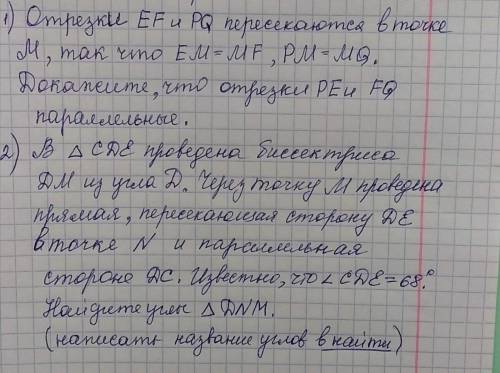 1) Отрезки EF и PQ пересекаются в точке
M, так что EM=MF, PM=MQ.
Докажите, что отрезки PE и FQ
параллельные.
2) В △ CDE проведена биссектриса
DM из угла D. Через точку M проведена
прямая, пересекающая сторону DE
в точке N и параллельная
стороне DC. Известно, что ∠ CDE = 68°.
Найдите углы △ DNM.
(написать название углов в найти)